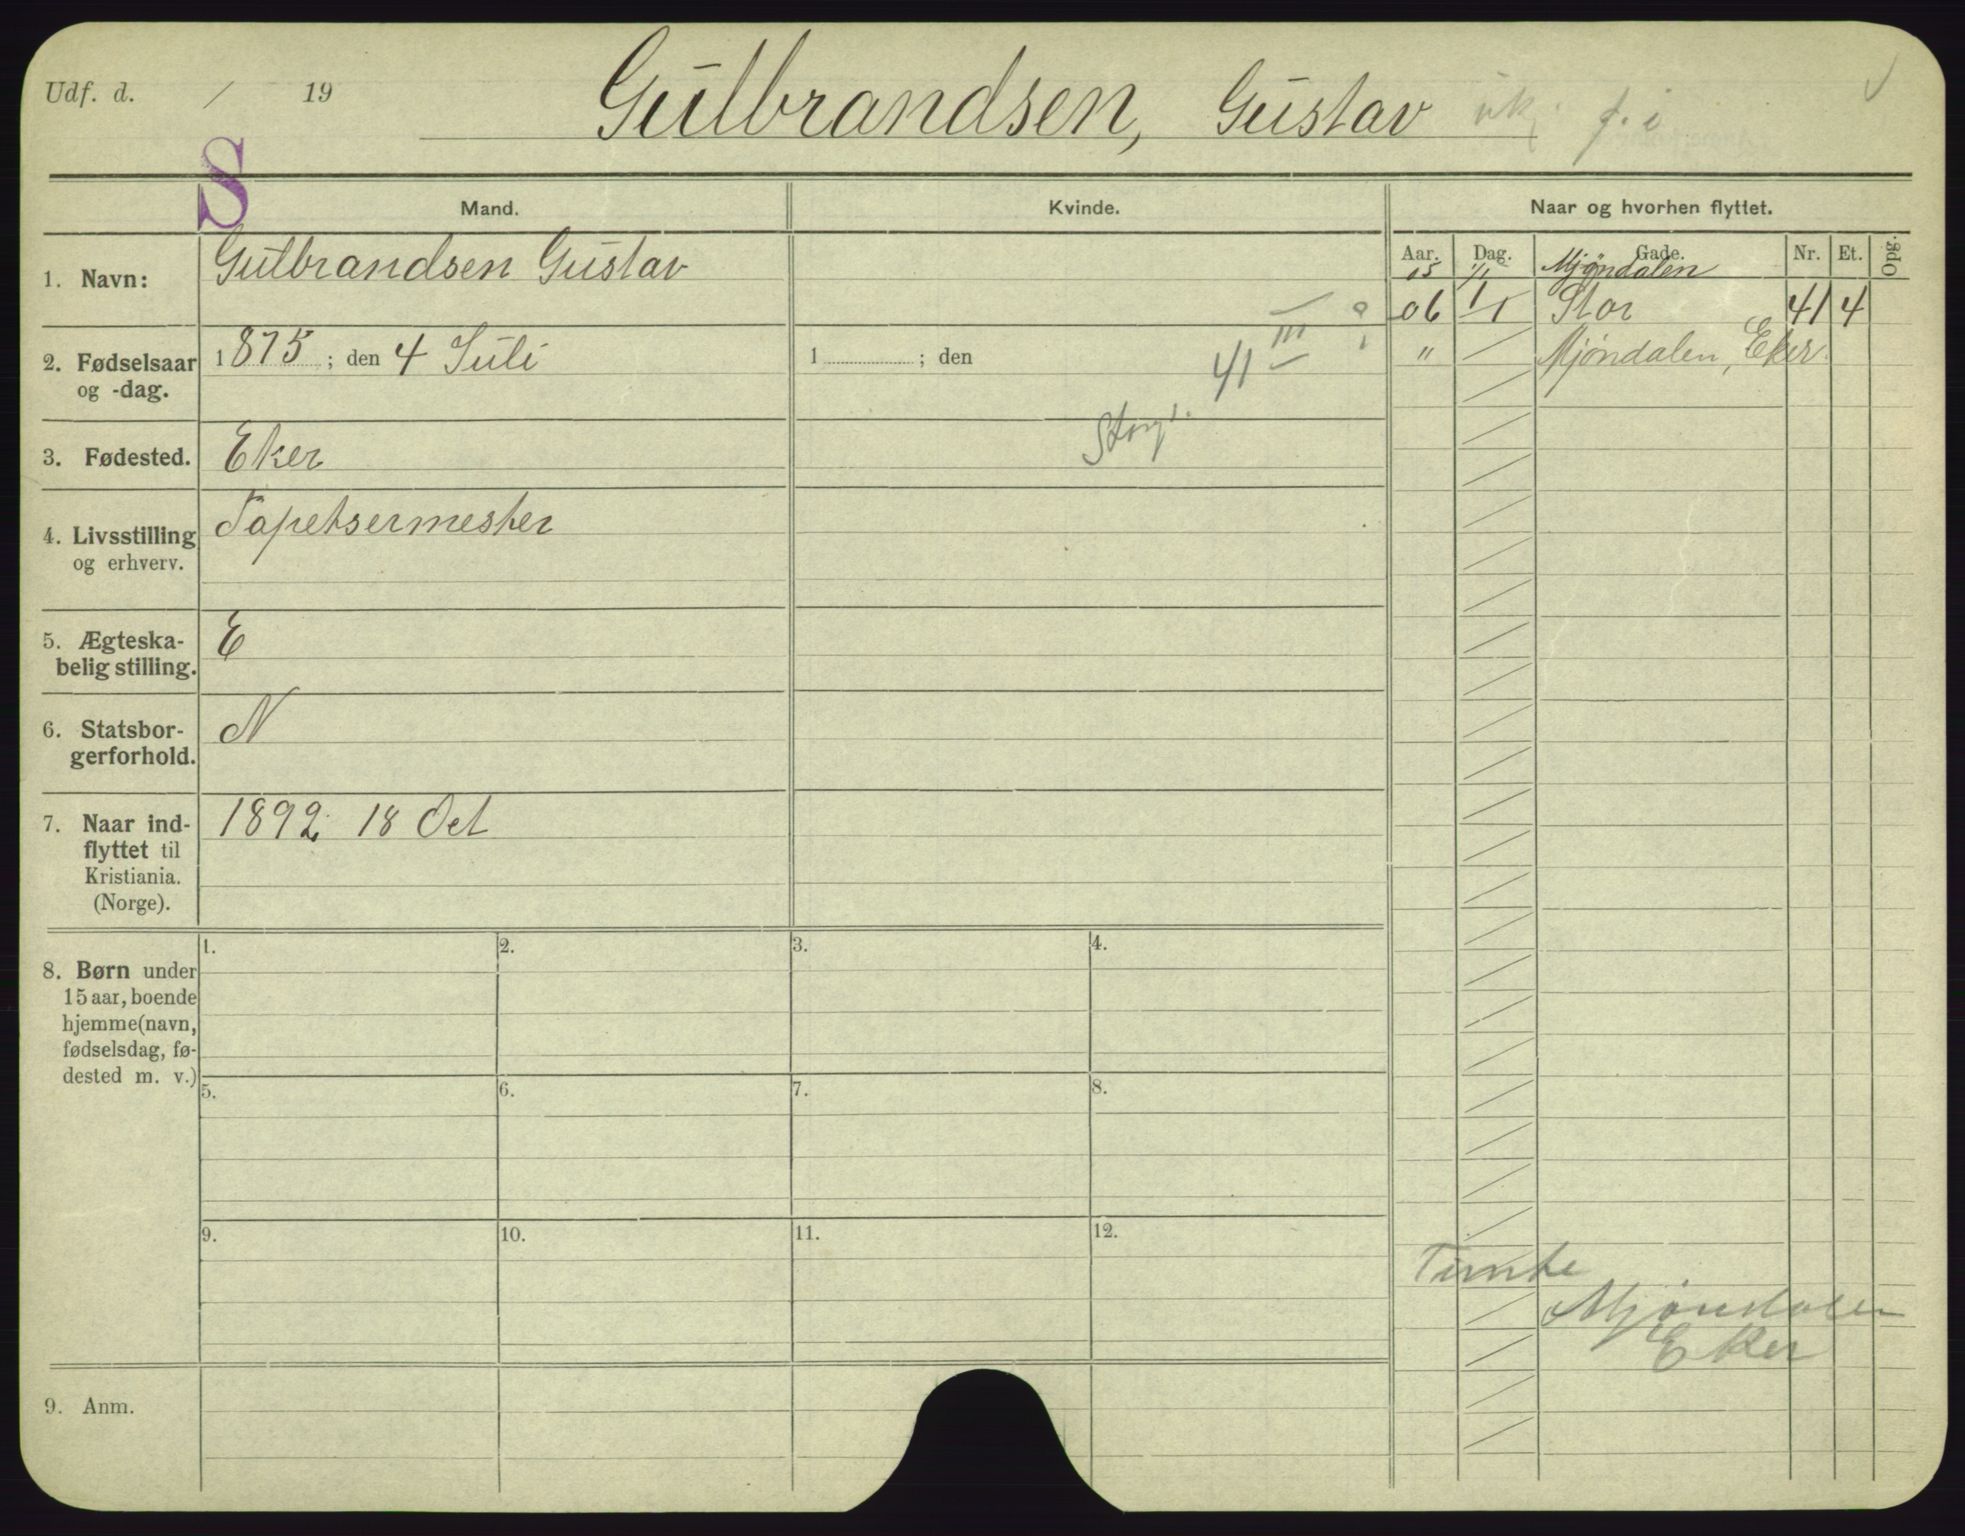 Udf. d. / 19
Gulbrandsen, Gustav
S
Mand.
Kvinde.
Naar og hvorhen flyttet.
Aar. Dag. Gade. Nr. Et. Opg.
15 1/1 Mjøndalen
06 1/1 Stor 41 4
" Mjøndalen, Eker.
1. Navn: Gulbrandsen Gustav
2. Fødselsaar og -dag. 1875; den 4 Juli
1 ; den
41 III
3. Fødested. Eker
Storg.
4. Livsstilling og erhverv. Tapetsermester
5. Ægteska-
belig stilling. E
6. Statsbor-
gerforhold. N
7. Naar ind-
flyttet til
Kristiania.
(Norge).
1892 18 Oct
8. Børn under
15 aar, boende
hjemme (navn,
fødselsdag, fø-
dested m. v.)
1. 2. 3. 4.
5. 6. 7. 8.
9. 10. 11. 12.
Mjøndalen
Eker
9. Anm.